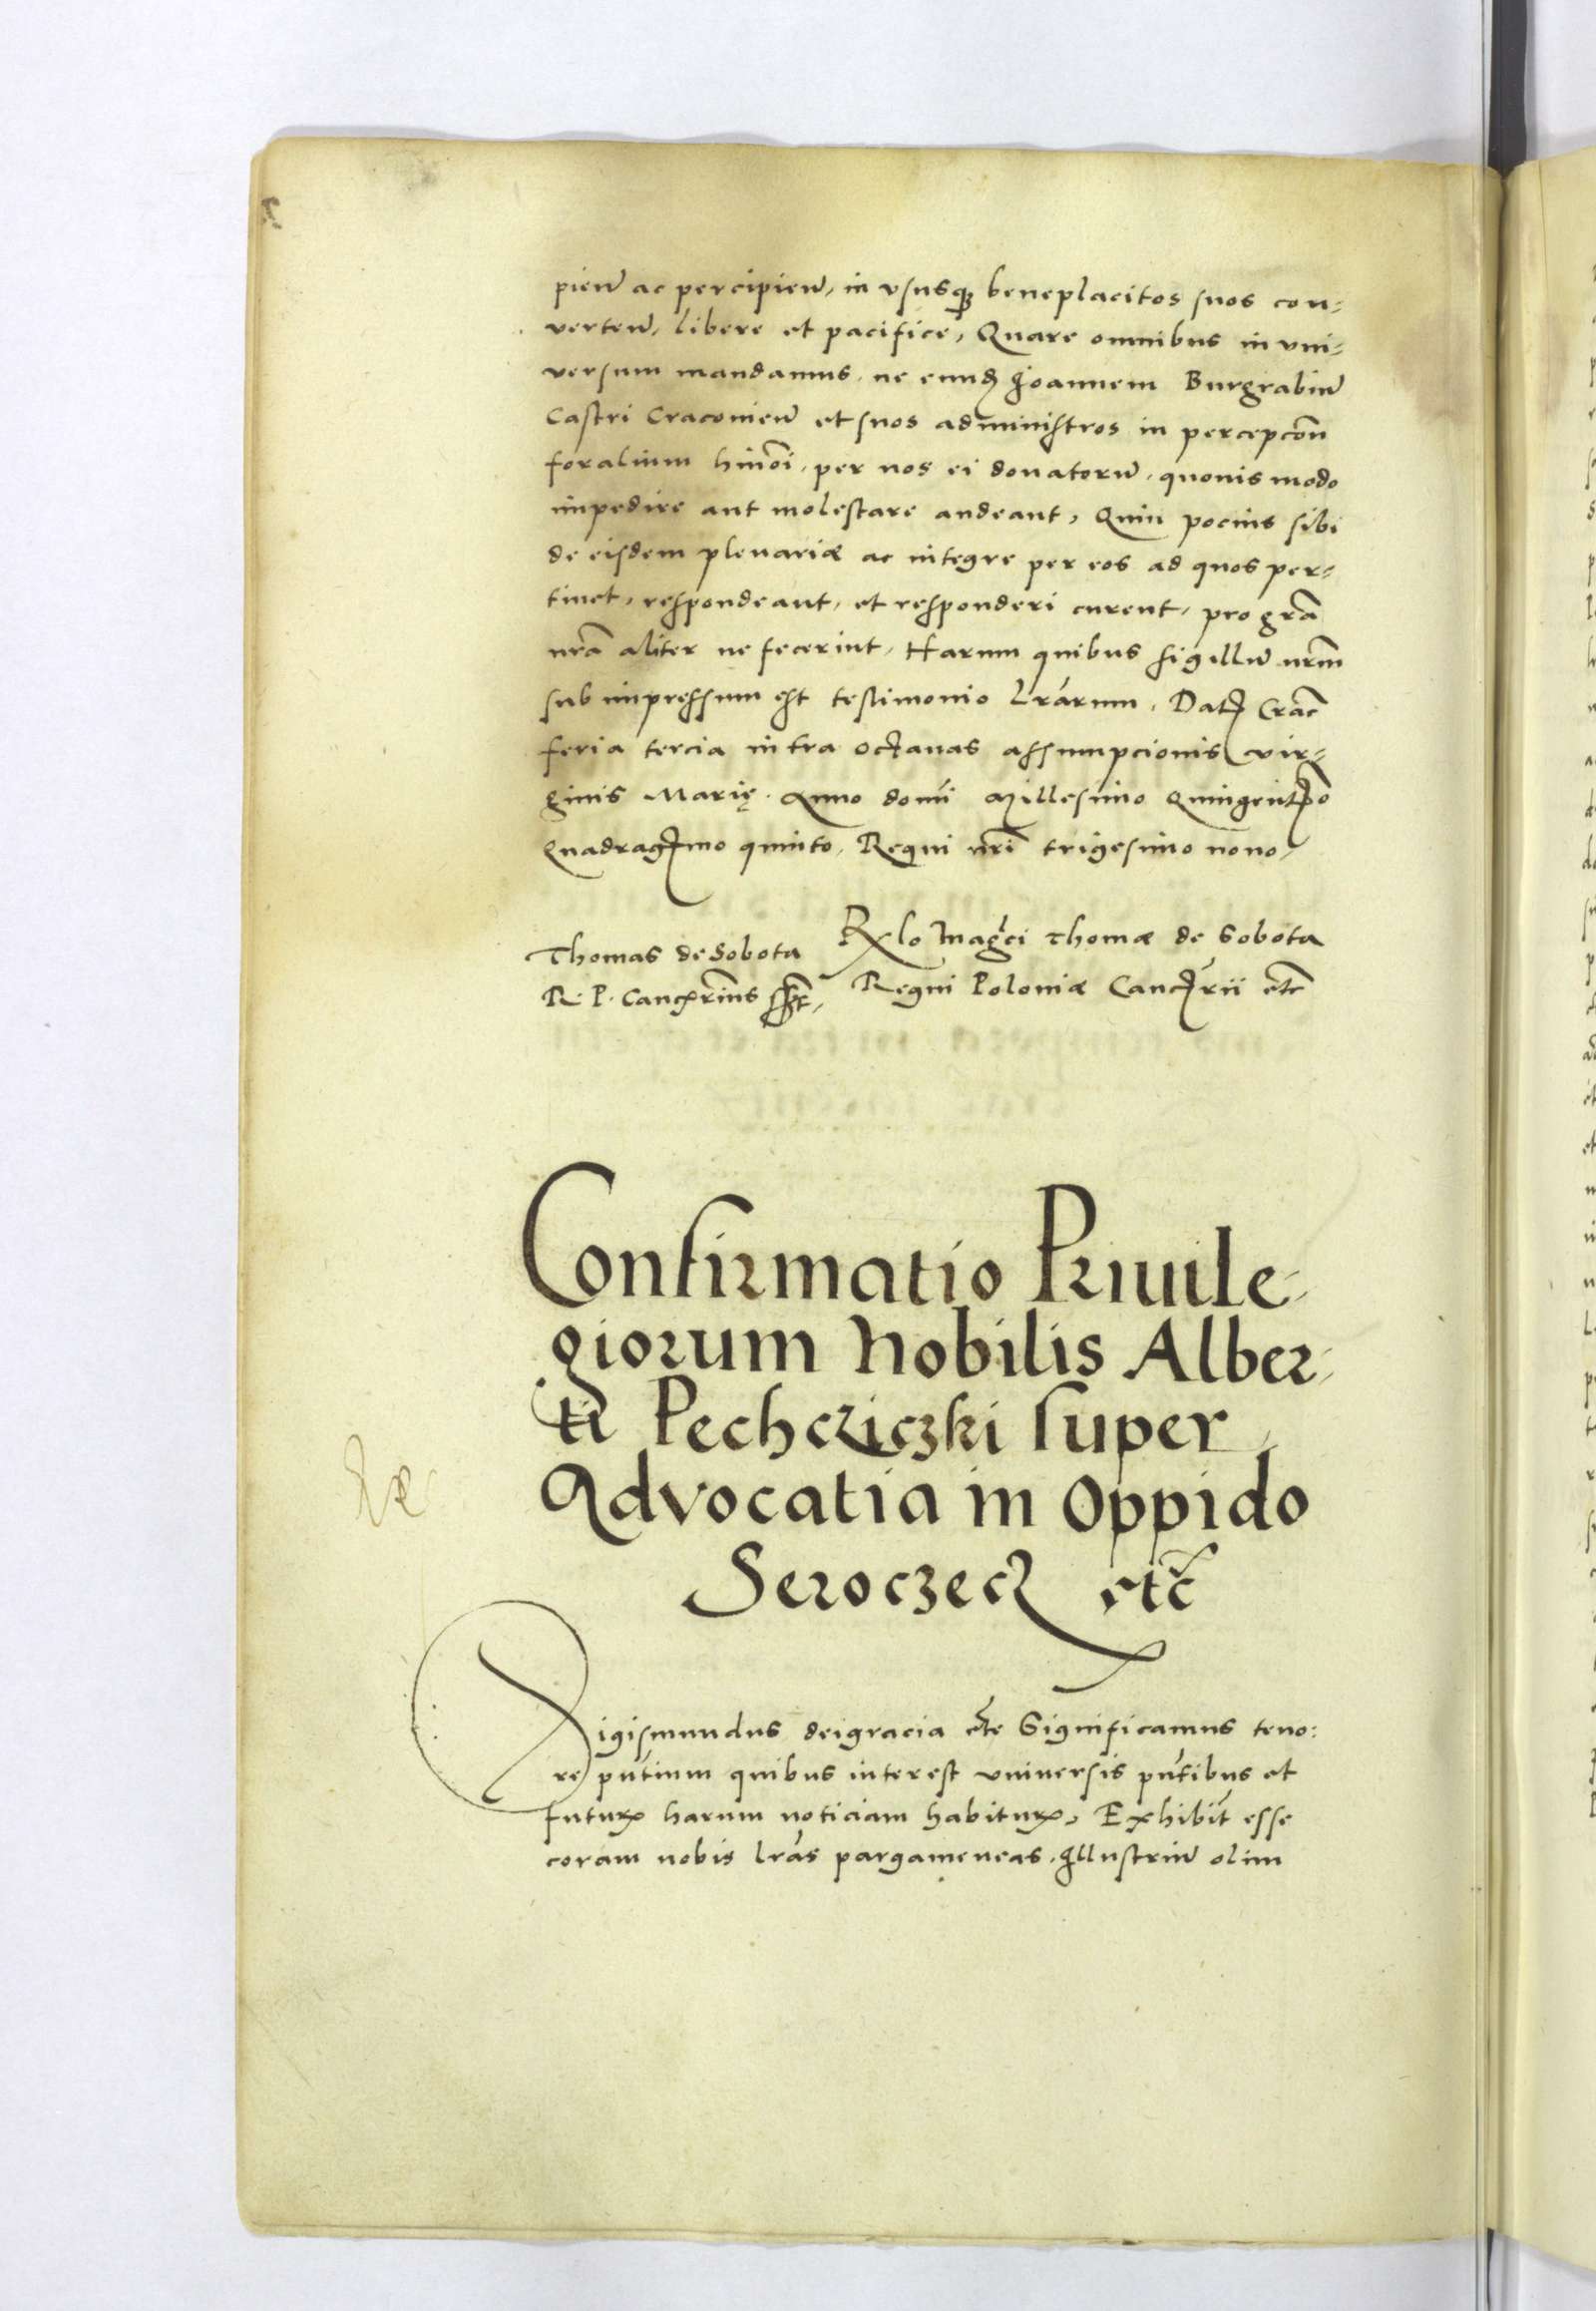 pień ac percipień, in vsusq₃ beneplacitos suos con-
verteń, libere et pacifice, Quare omnibus in vni-
versum mandamus, ne eund₃ Joannem Burgrabiū
Castri Cracovień et suos administros in percepcōn
foralium hmōi, per nos ei donatorū, quovis modo
impedire aut molestare audeant, Quin pocius sibi
de eisdem plenariæ ac integre per eos ad quos per-
tinet, respondeant, et responderi curent, pro grā
nrā aliter ne fecerint, Harum quibus sigillū nrm̄
sub impressum est testimonio lrārum, Datꝭ Crac̄
feria tercia intra octauas assumpcionis vir-
ginis Marię. Anno domī Millesimo Quingentꝭmo
Quadragꝭmo quinto, Regni nrī trigesimo nono,
Thomas de Sobota
R. P. Cancꝭrius sspt,
Rlo Magci Thomæ de Sobota
Regni Poloniæ Cancꝭrii etc̄
Confirmatio Priuile-
giorum Nobilis Alber-
ti Pechcziczki super
Advocatia in Oppido
Seroczeck etc̄
Sigismundus dei gracia etc̄ Significamus teno:
re pn̄tium quibus interest vniuersis pn̄tibus et
futurꝭ harum noticiam habiturꝭ, Exhibit̄ esse
coram nobis lrās pargameneas, Illustriū olim